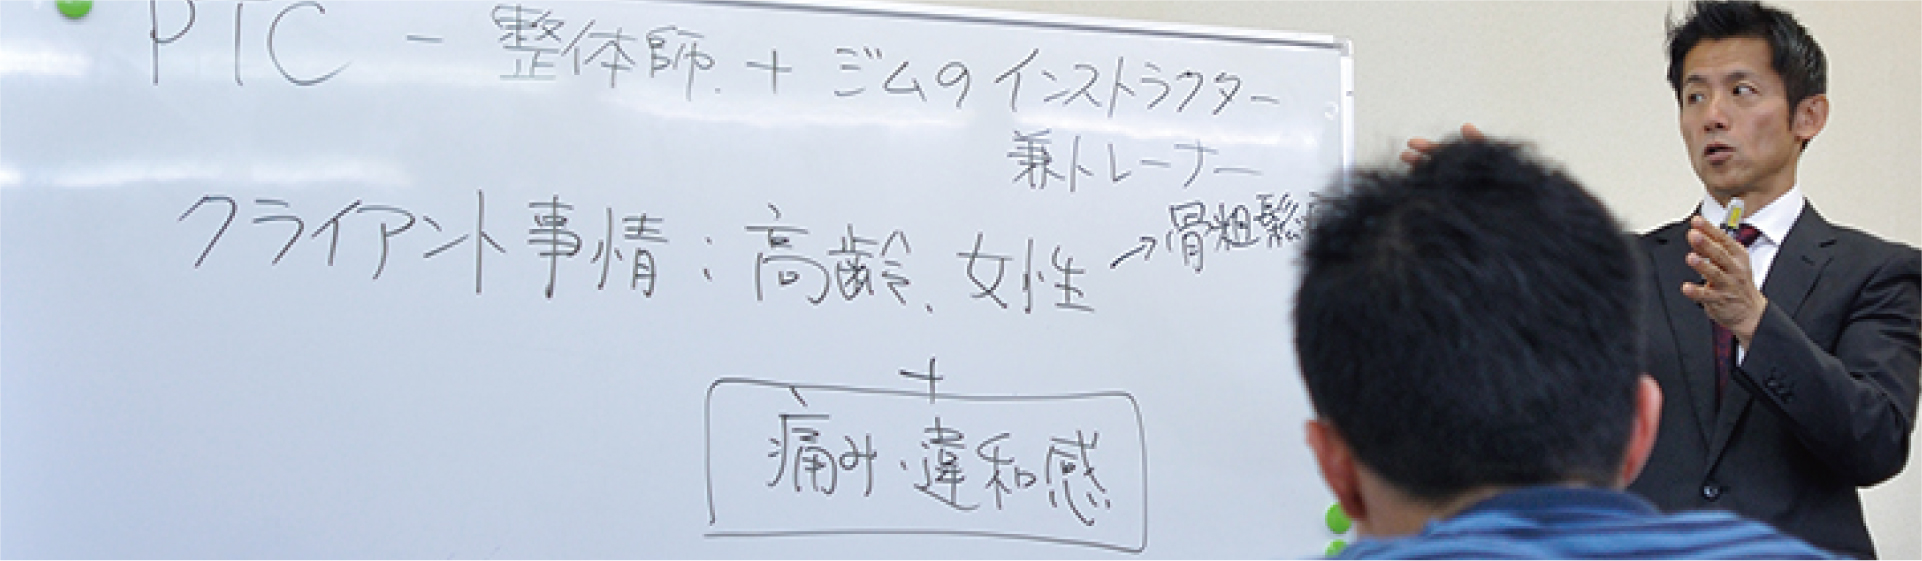 PTC - 整体師. + ジムの インストラクター
兼トレーナー
クライアント事情 : 高齢、女性 → 骨粗鬆
+
痛み・違和感